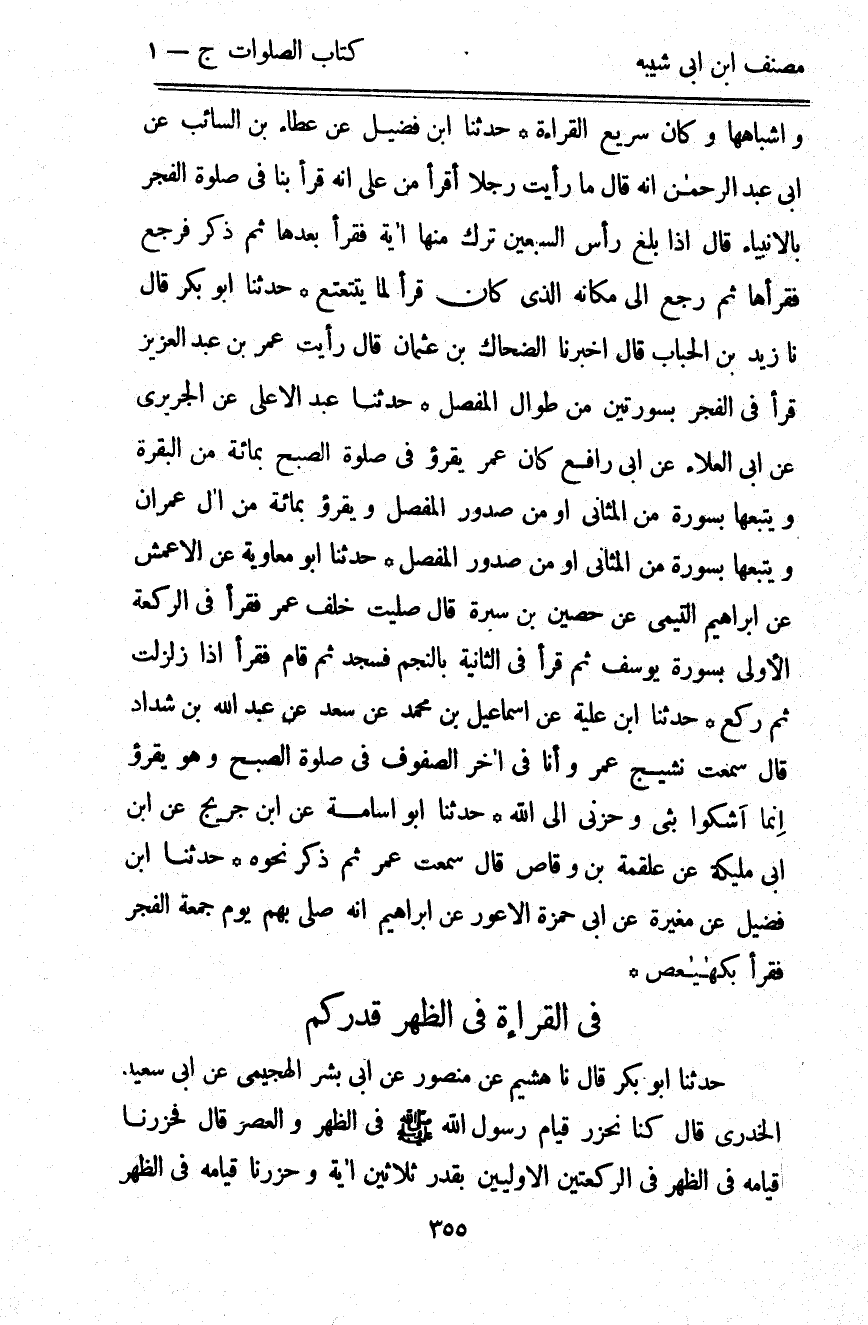 مصنف ابن ابى شيبه
كتاب الصلوات ج – ١
و اشباهها و كان سريع القراءة * حدثنا ابن فضيل عن عطاء بن السائب عن
ابى عبد الرحمٰن انه قال ما رأيت رجلا أقرأ من على انه قرأ بنا فى صلوة الفجر
بالانبياء قال اذا بلغ رأس السبعين ترك منها اٰية فقرأ بعدها ثم ذكر فرجع
فقرأها ثم رجع الى مكانه الذى كان قرأ لما يتتعتع * حدثنا ابو بكر قال
نا زيد بن الحباب قال اخبرنا الضحاك بن عثمان قال رأيت عمر بن عبد العزيز
قرأ فى الفجر بسورتين من طوال المفصل * حدثنا عبد الاعلى عن الجريرى
عن ابى العلاء عن ابى رافع كان عمر يقرؤ فى صلوة الصبح بمائة من البقرة
و يتبعها بسورة من المثانى او من صدور المفصل و يقرؤ بمائة من اٰل عمران
و يتبعها بسورة من المثانى او من صدور المفصل * حدثنا ابو معاوية عن الاعمش
عن ابراهيم التيمى عن حصين بن سبرة قال صليت خلف عمر فقرأ فى الركعة
الأولى بسورة يوسف ثم قرأ فى الثانية بالنجم فسجد ثم قام فقرأ اذا زلزلت
ثم ركع * حدثنا ابن علية عن اسماعيل بن محمد عن سعد عن عبد الله بن شداد
قال سمعت نشيج عمر و أنا فى اٰخر الصفوف فى صلوة الصبح و هو يقرؤ
اِنما اَشكوا بثى و حزنى الى الله * حدثنا ابو اسامة عن ابن جريج عن ابن
ابى مليكة عن علقمة بن و قاص قال سمعت عمر ثم ذكر نحوه * حدثنا ابن
فضيل عن مغيرة عن ابى حمزة الاعور عن ابراهيم انه صلى بهم يوم جمعة الفجر
فقرأ بكهٰيٰعص *
فى القراءة فى الظهر قدركم
حدثنا ابو بكر قال نا هشيم عن منصور عن ابى بشر الهجيمى عن ابى سعيد
الخدرى قال كنا نحزر قيام رسول الله ﷺ فى الظهر و العصر قال فحزرنا
قيامه فى الظهر فى الركعتين الاوليين بقدر ثلاثين اٰية و حزرنا قيامه فى الظهر
٣٥٥